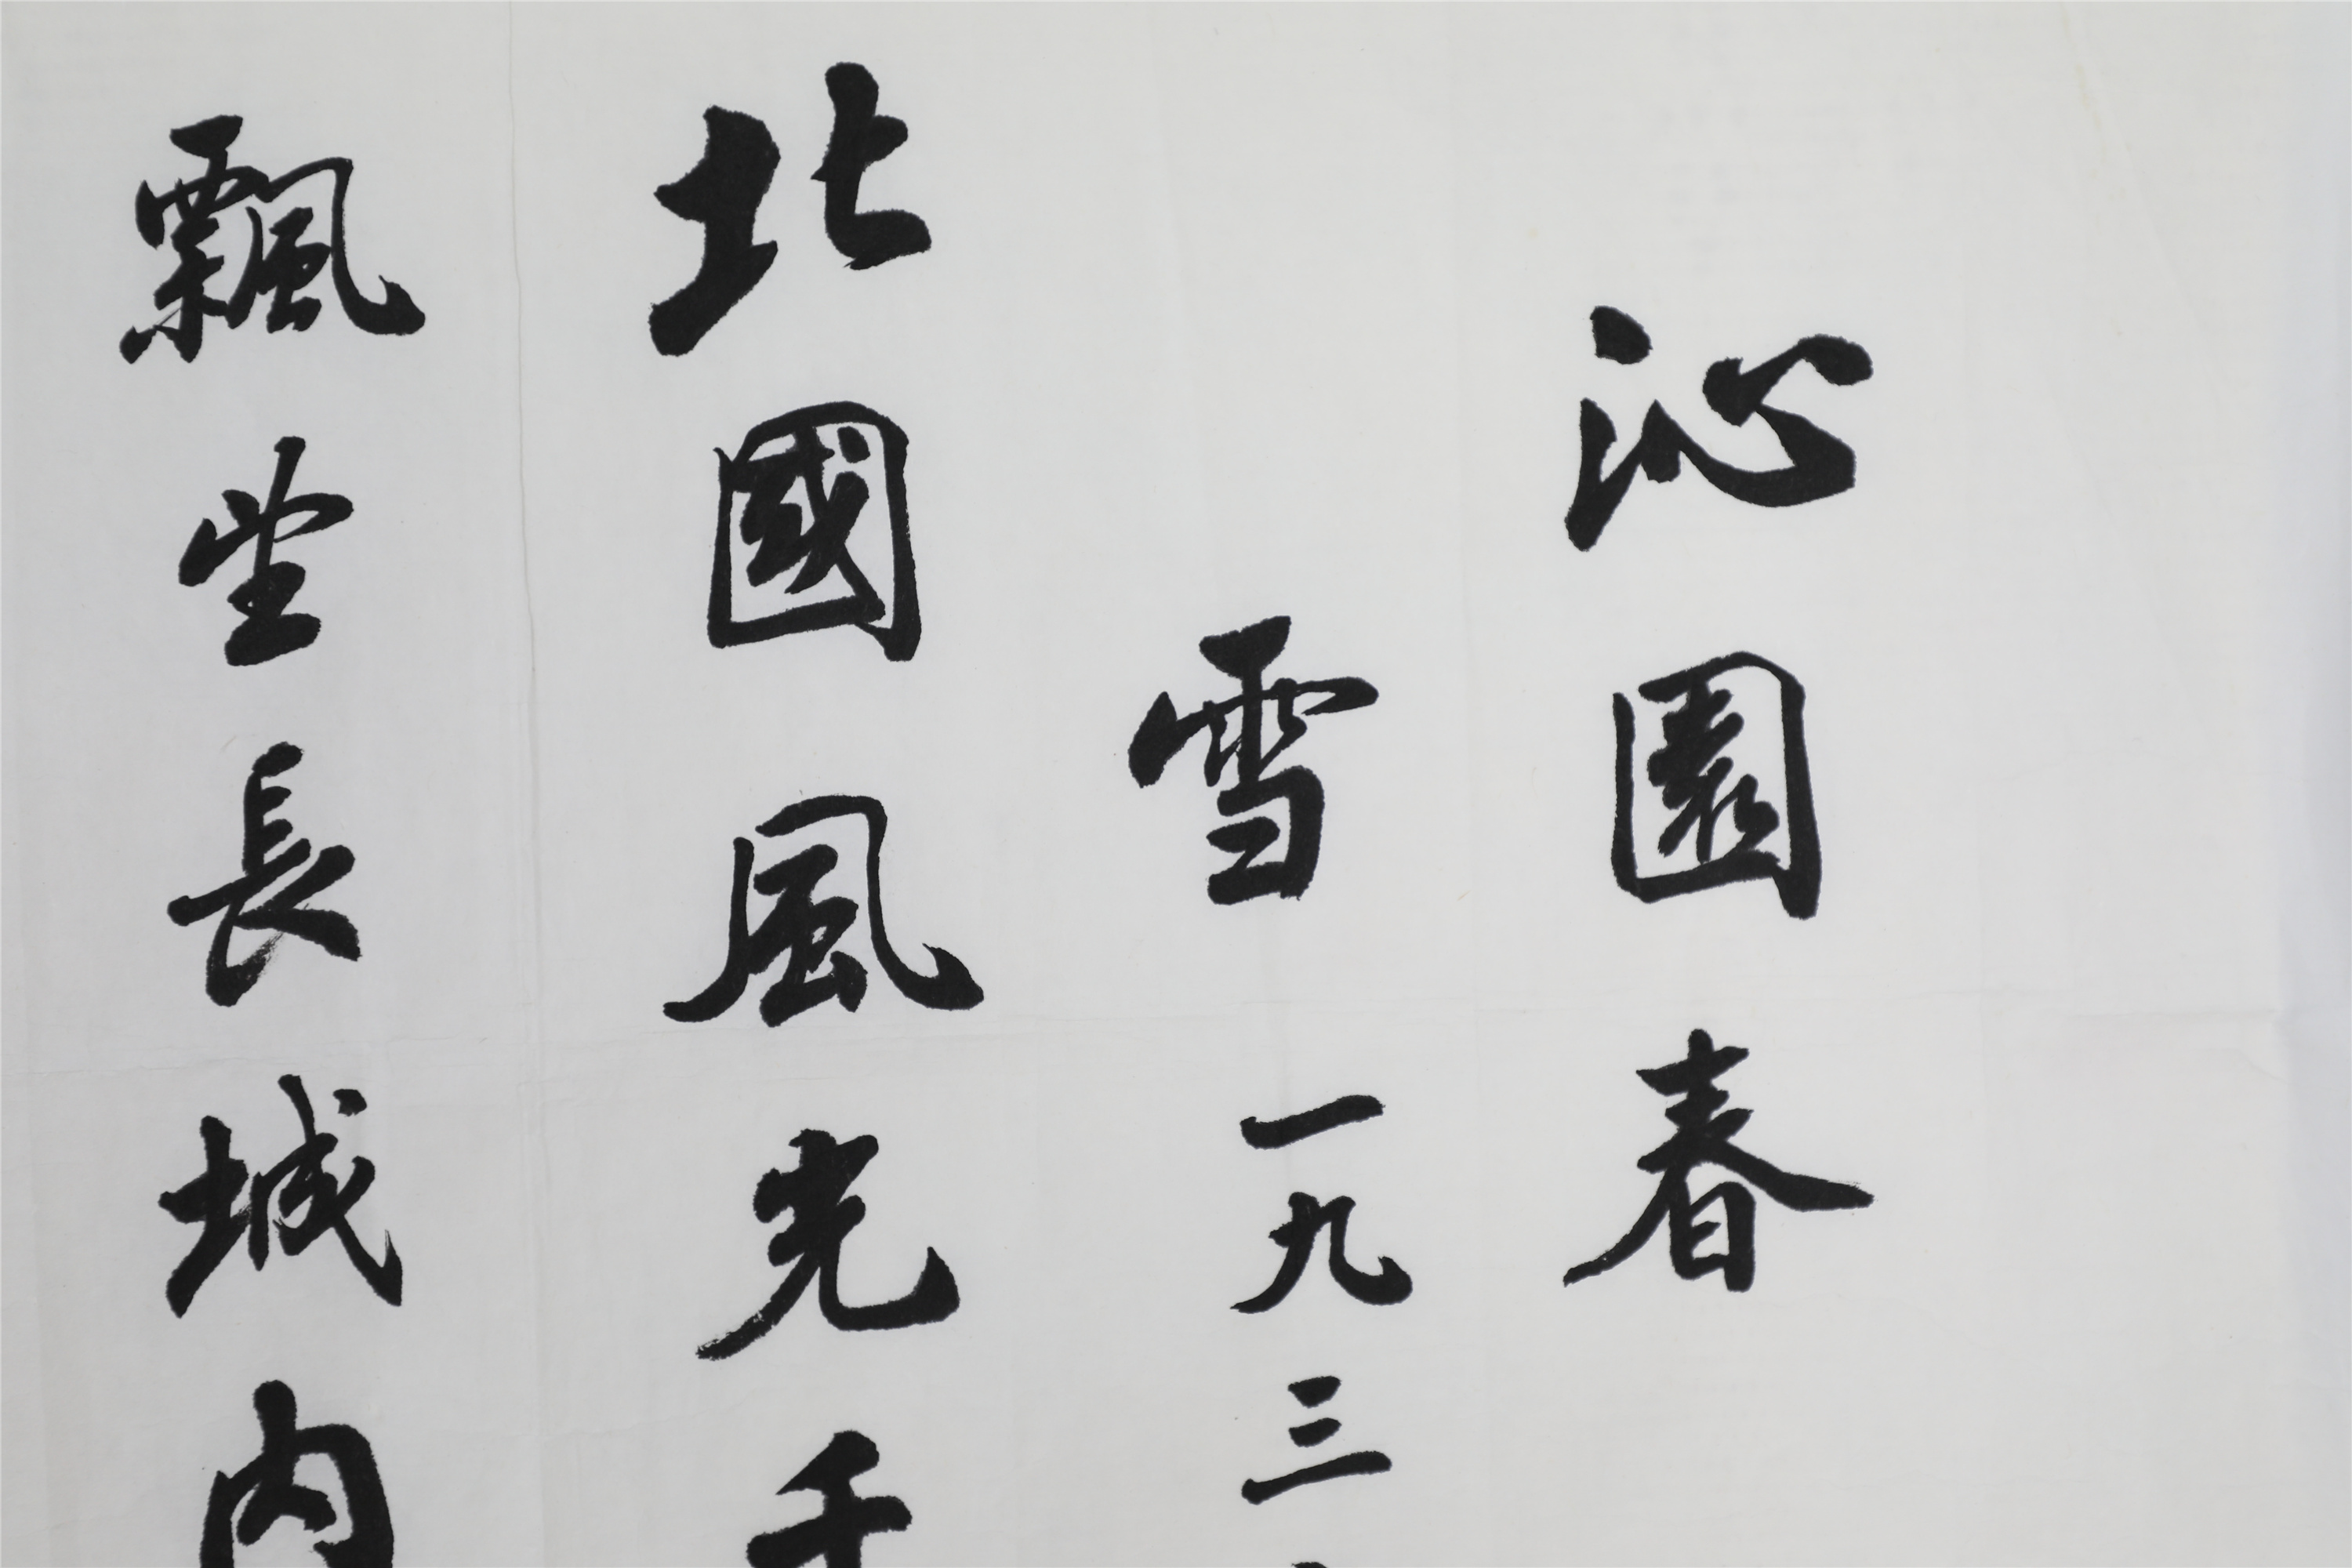 沁園春
雪一九三
北國風光千
飄望長城内